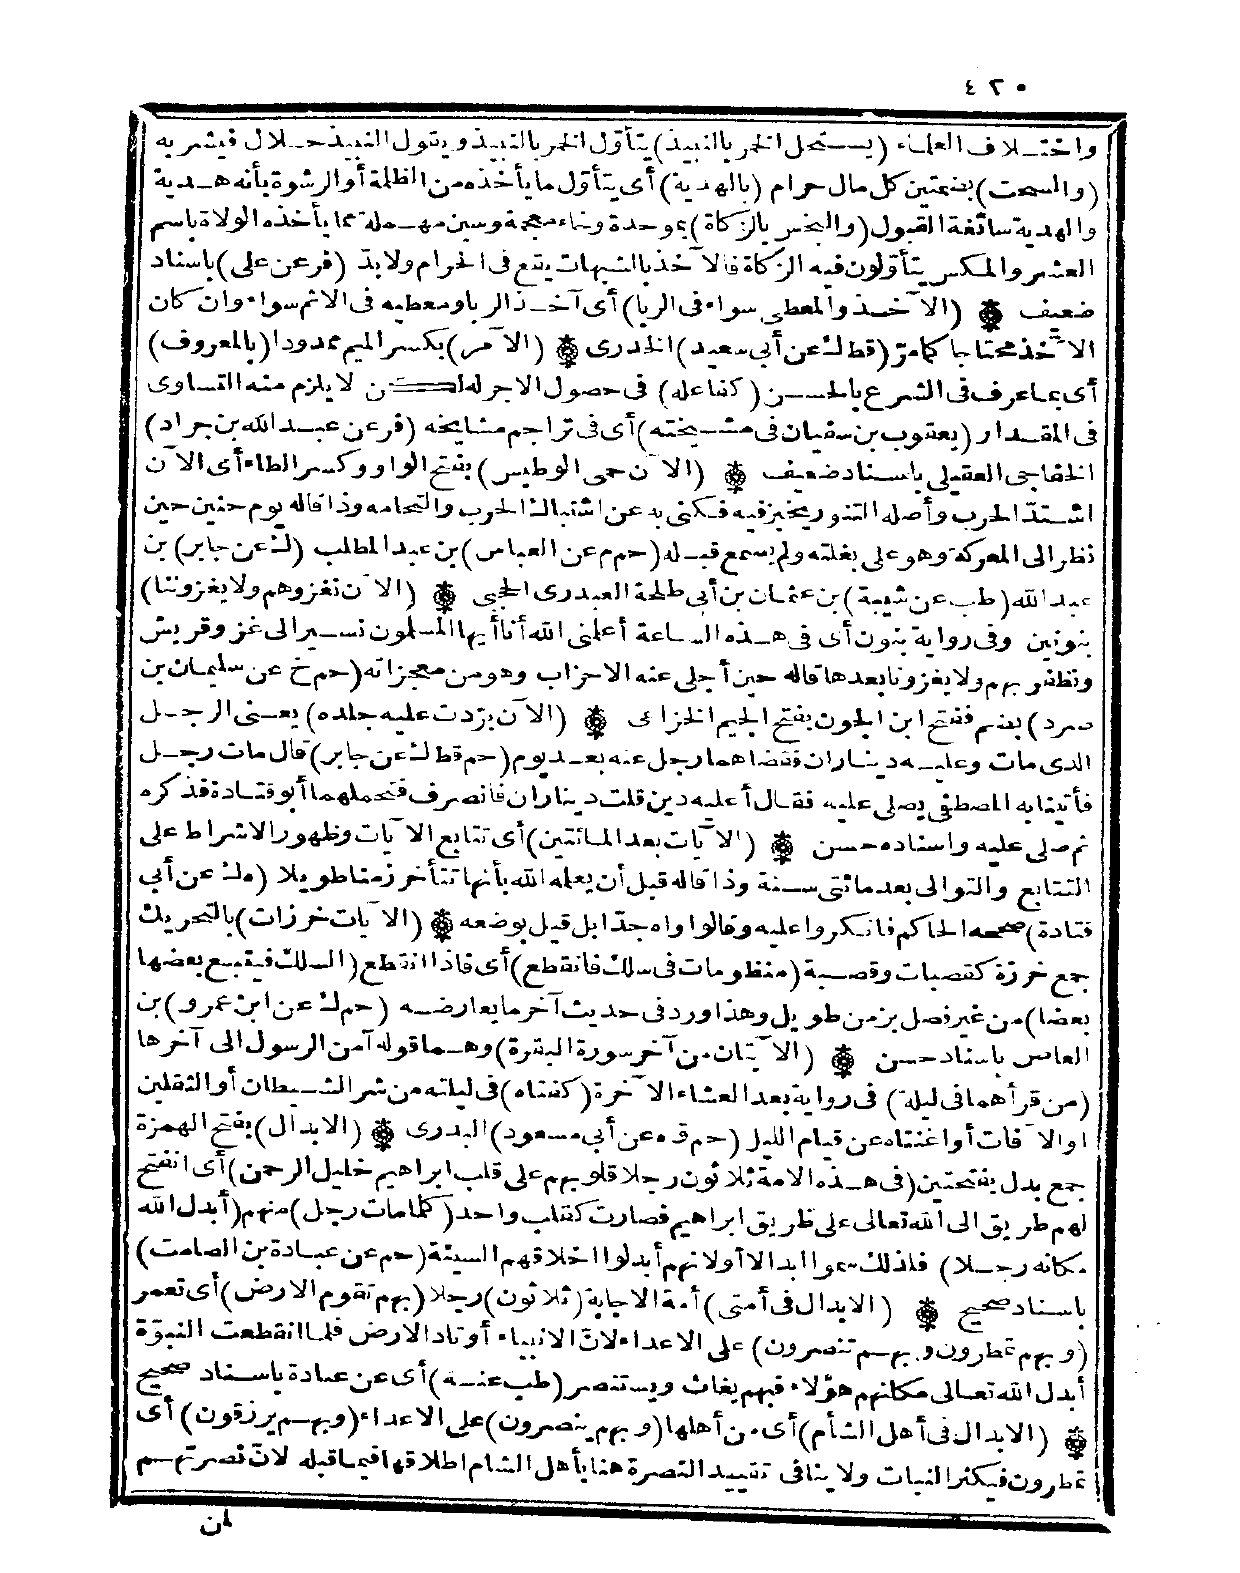 ٤٢٠
واختلاف العلماء (يستحل الخمر بالنبيذ) يتأول الخمر بالنبيذ ويقول النبيذ حلال فيشربه
(والسحت) بضمتين كل مال حرام (بالهدية) أى يتأول ما يأخذه من الظلمة أو الرشوة بأنه هدية
والهدية سائغة القبول (والبخس بالزكاة) بموحدة وخاء معجمة وسين مهملة ما يأخذه الولاة باسم
العشر والمكس يتأولون فيه الزكاة فالآخذ بالشبهات يقع فى الحرام ولابد (فر عن على) باسناد
ضعيف ۞ (الآخذ والمعطى سواء فى الربا) أى آخذ الربا ومعطيه فى الاثم سواء وان كان
الآخذ محتاجا كما مرّ (قط ك عن أبى سعيد) الخدرى ۞ (الآمر) بكسر الميم ممدودا (بالمعروف)
أى بما عرف فى الشرع بالحسن (كفاعله) فى حصول الاجر له لكن لا يلزم منه التساوى
فى المقدار (يعقوب بن سفيان فى مشيخته) أى فى تراجم مشايخه (فر عن عبد الله بن جراد)
الخفاجى العقيلى باسناد ضعيف ۞ (الآن حمى الوطيس) بفتح الواو وكسر الطاء أى الآن
اشتدّ الحرب وأصله التنور يخبز فيه فكنى به عن اشتباك الحرب والتحامه وذا قاله يوم حنين حين
نظر الى المعركة وهو على بغلته ولم يسمع قبله (حم م عن العباس) بن عبد المطلب (ك عن جابر) بن
عبد الله (طب عن شيبة) بن عثمان بن أبى طلحة العبدرى الحجبى ۞ (الآن نغزوهم ولا يغزوننا)
بنونين وفى رواية بنون أى فى هذه الساعة أعلمنى الله أنا أيها المسلمون نسير الى غزو قريش
ونظفر بهم ولا يغزونا بعدها قاله حين أجلى عنه الاحزاب وهو من معجزاته (حم خ عن سليمان بن
صرد) بضم ففتح ابن الجون بفتح الجيم الخزاعى ۞ (الآن بردت عليه جلده) يعنى الرجل
الذى مات وعليه ديناران فقضاهما رجل عنه بعد يوم (حم قط ك عن جابر) قال مات رجل
فأتينا به المصطفى يصلى عليه فقال أعليه دين قلت ديناران فانصرف فتحملهما أبو قتادة فذكره
ثم صلى عليه واسناده حسن ۞ (الآيات بعد المائتين) أى تتابع الآيات وظهور الاشراط على
التتابع والتوالى بعد مائتى سنة وذا قاله قبل أن يعلمه الله بأنها تتأخر زمنا طويلا (ه ك عن أبى
قتادة) صححه الحاكم فأنكروا عليه وقالوا واه جدّا بل قيل بوضعه ۞ (الآيات خرزات) بالتحريك
جمع خرزة كقصبات وقصبة (منظومات فى سلك فانقطع) أى فاذا انقطع (السلك فيتبع بعضها
بعضا) من غير فصل بزمن طويل وهذا ورد فى حديث آخر ما يعارضه (حم ك عن ابن عمرو) بن
العاص باسناد حسن ۞ (الآيتان من آخر سورة البقرة) وهما قوله آمن الرسول الى آخرها
(من قرأهما فى ليلة) فى رواية بعد العشاء الآخرة (كفتاه) فى ليلته من شر الشيطان أو الثقلين
او الآفات أو أغنتاه عن قيام الليل (حم ق ٤ عن أبى مسعود) البدرى ۞ (الابدال) بفتح الهمزة
جمع بدل بفتحتين (فى هذه الامة ثلاثون رجلا قلوبهم على قلب ابراهيم خليل الرحمن) أى انفتح
لهم طريق الى الله تعالى على طريق ابراهيم فصارت كقلب واحد (كلما مات رجل) منهم (أبدل الله
مكانه رجلا) فلذلك سموا ابدالا أو لانهم أبدلوا اخلاقهم السيئة (حم عن عبادة بن الصامت)
باسناد صحيح ۞ (الابدال فى أمتى) أمة الاجابة (ثلاثون) رجلا (بهم تقوم الارض) أى تعمر
(وبهم تمطرون وبهم تنصرون) على الاعداء لانّ الانبياء أوتاد الارض فلما انقطعت النبوّة
أبدل الله تعالى مكانهم هؤلاء فبهم يغاث ويستنصر (طب عنه) أى عن عبادة باسناد صحيح
۞ (الابدال فى أهل الشأم) أى من أهلها (وبهم ينصرون) على الاعداء (وبهم يرزقون) أى
تمطرون فيكثر النبات ولا ينافى تقييد النصرة هنا بأهل الشام اطلاقها فيما قبله لانّ نصرتهم
لمن